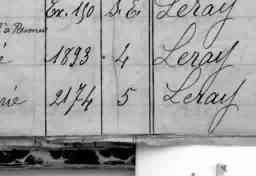 Ex. 150 D. Er. Leray
1893 4 Leray
2174 5 Leray